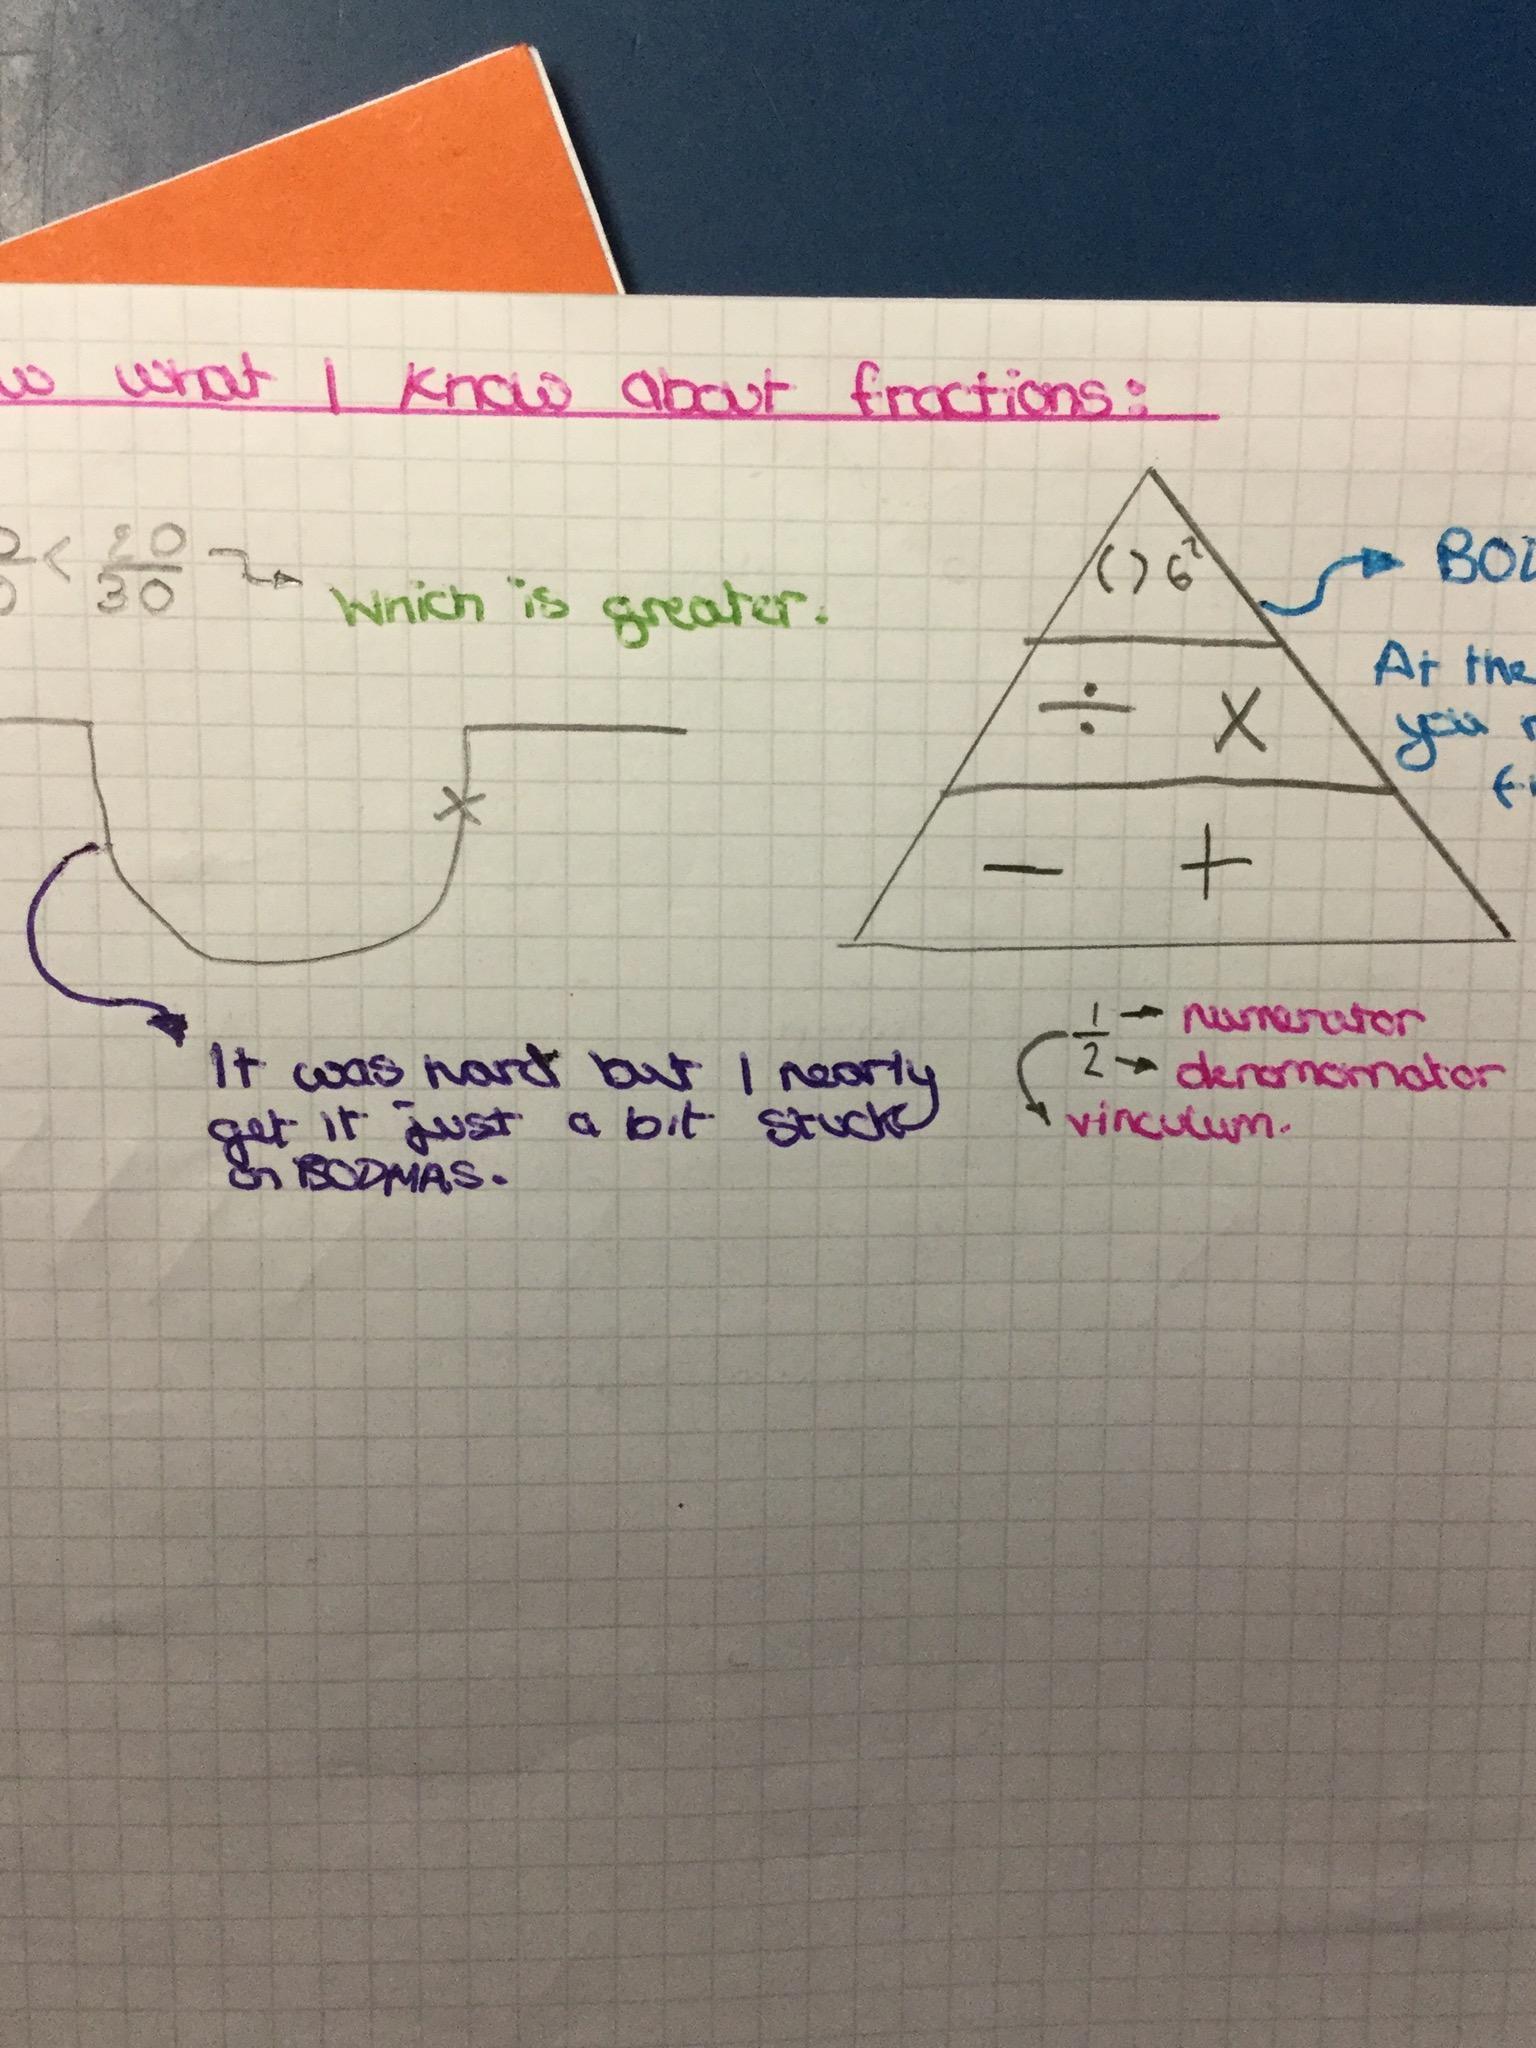 what I know about fractions:
< 20/30
which is greater.
( ) 6²
÷ X
− +
At the
you
X
It was hard but I nearly
get it just a bit stuck
on BODMAS.
1/2
numerator
denomomator
vinculum.